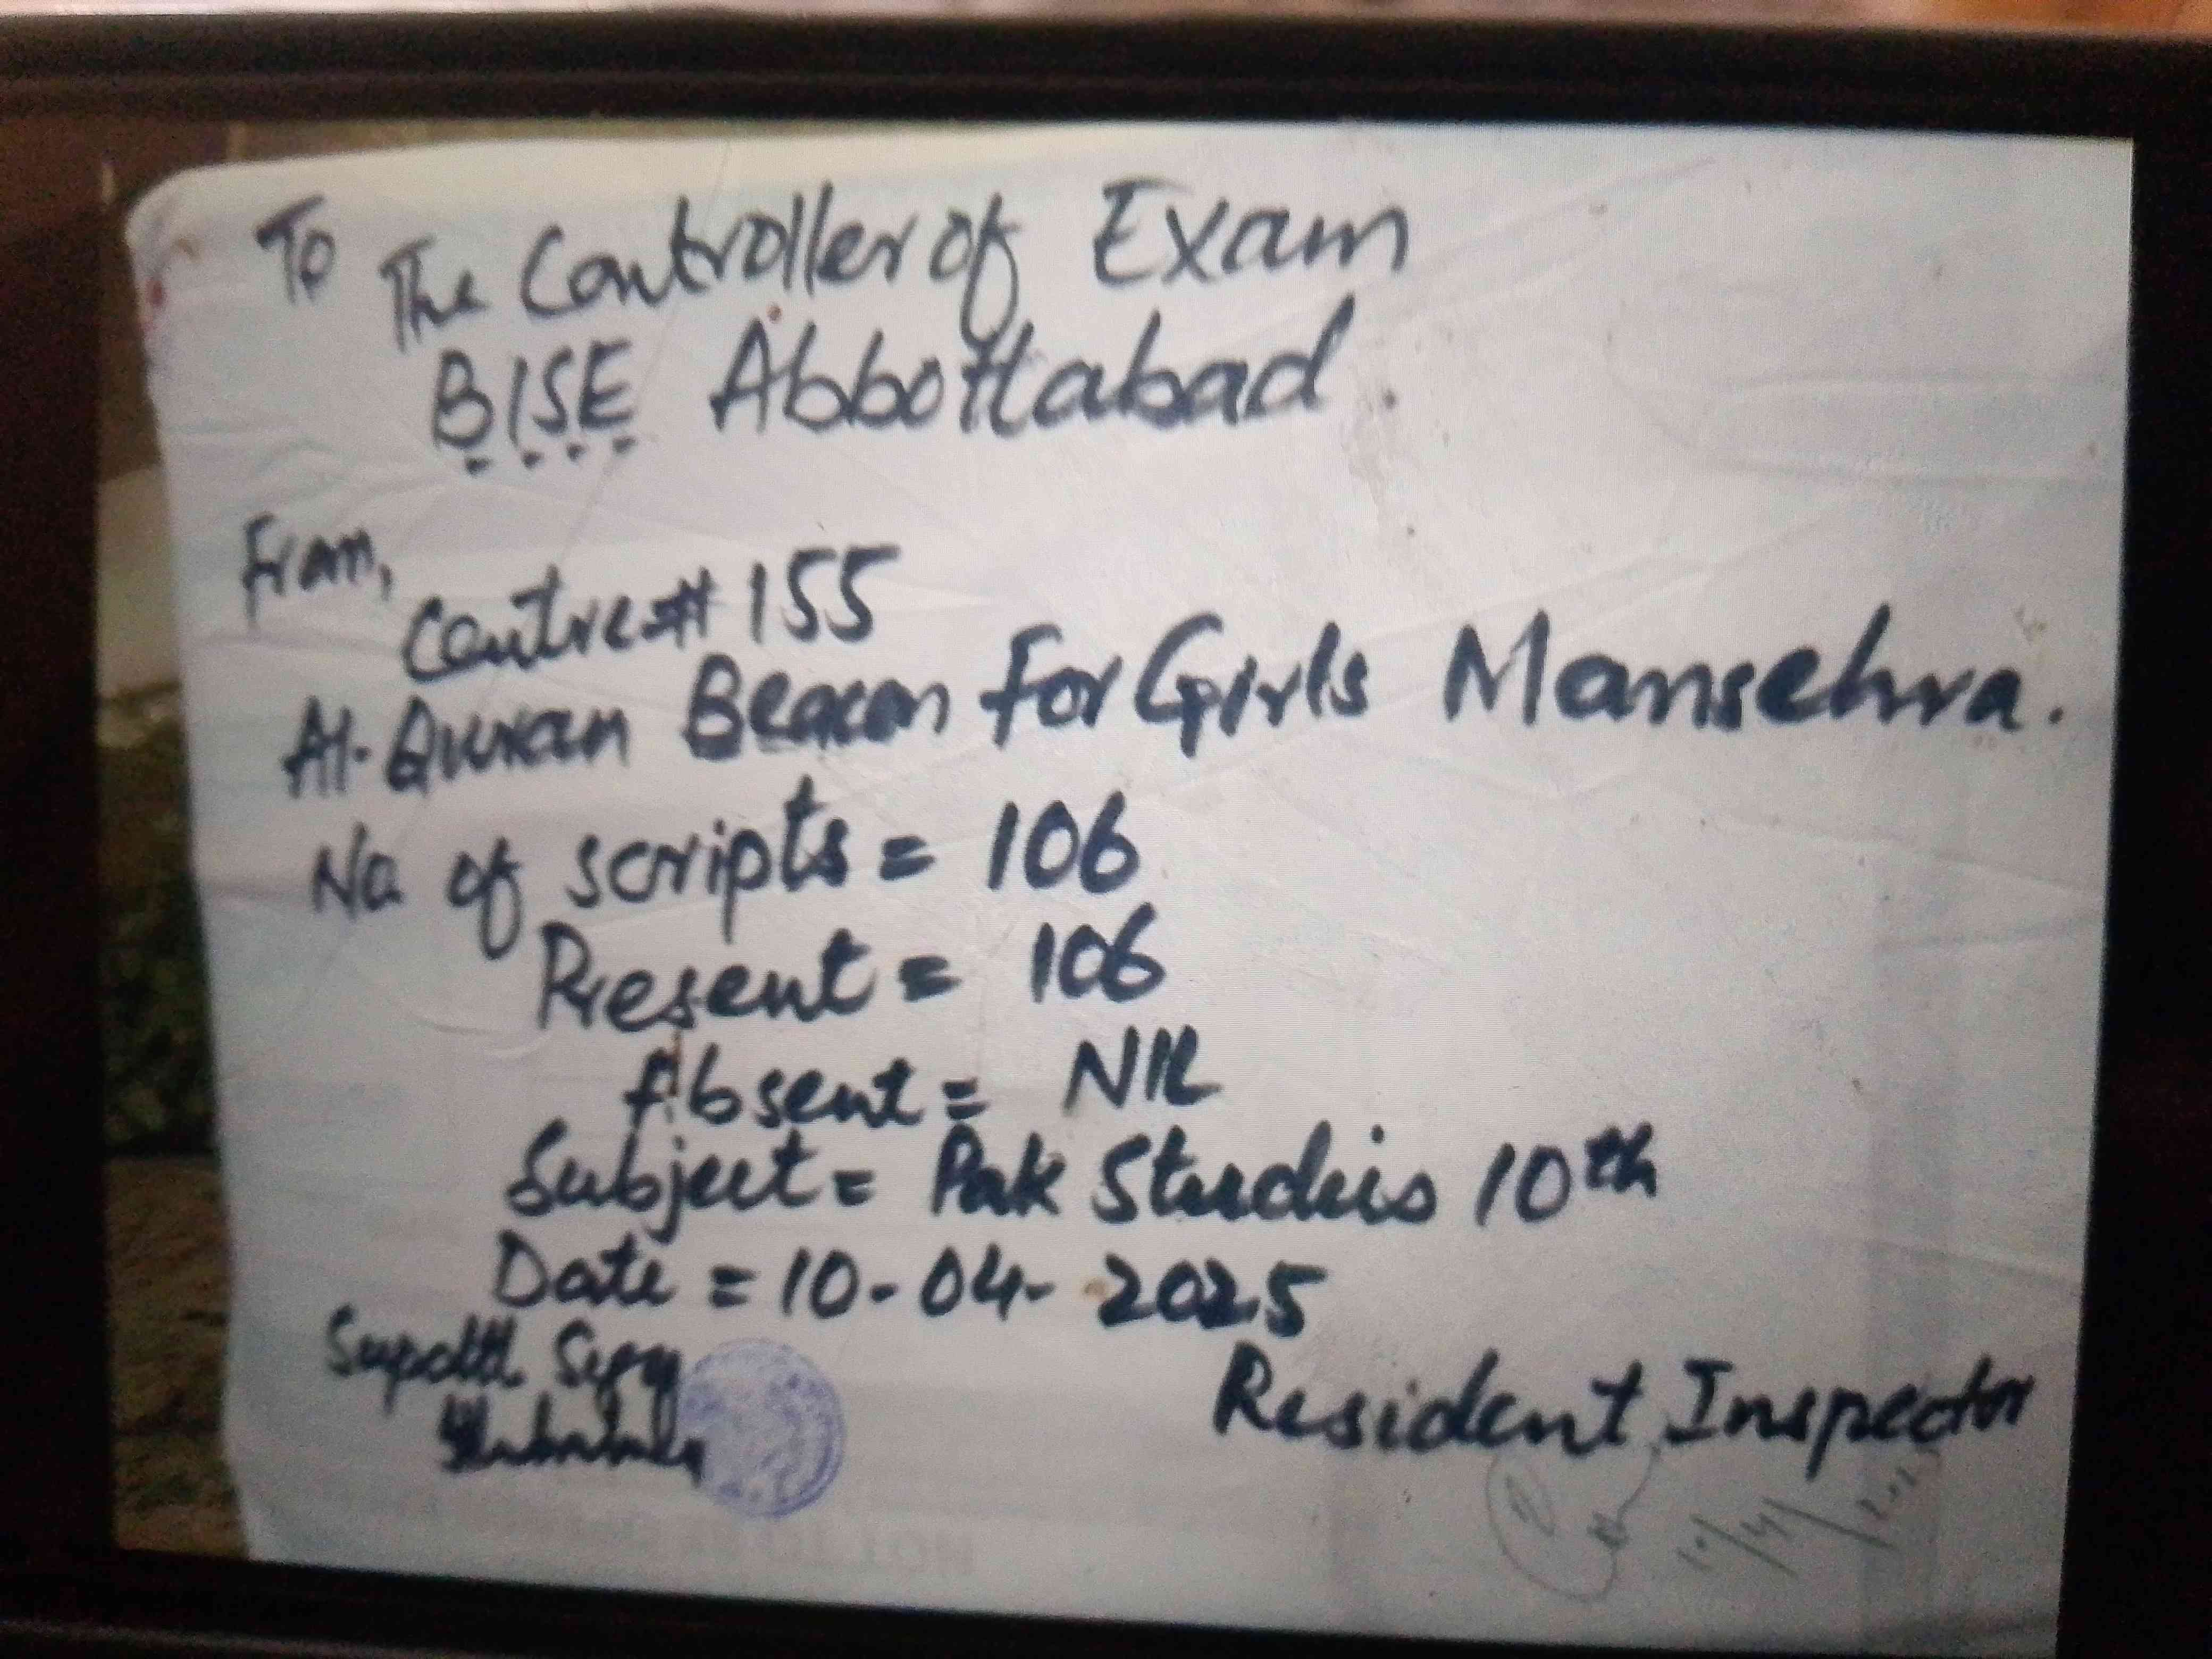 To The Controller of Exam
B.I.S.E. Abbottabad.
From,
Centre# 155
Al-Quran Beacon For Girls Mansehra.
No of scripts = 106
Present = 106
Absent = NIL
Subject = Pak Studies 10th
Date = 10-04-2025
Resident Inspector